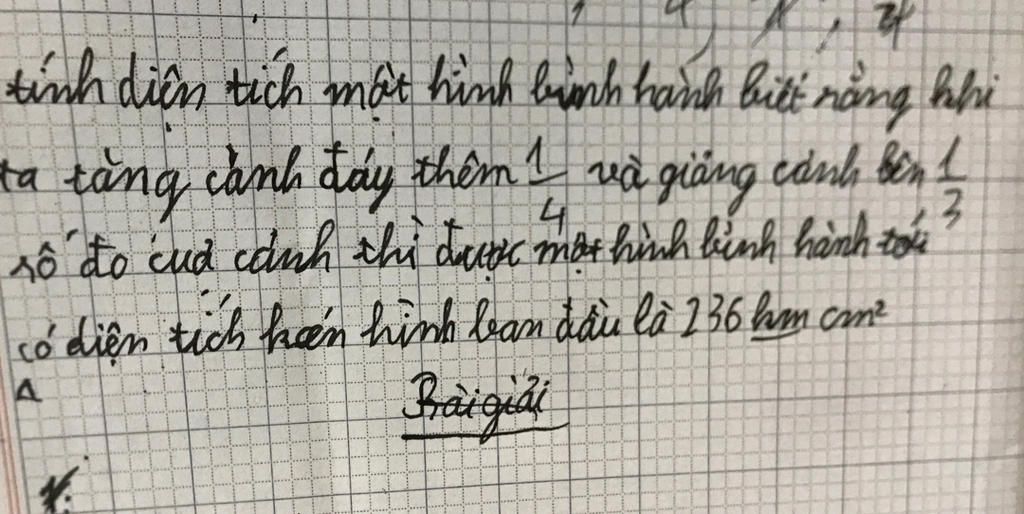 tính diện tích một hình bình hành biết rằng khi
ta tăng cạnh đáy thêm 1/4 và giảng cánh bên 1/3
số đo của cánh thì được một hình bình hành
có diện tích hình ban đầu là 236 cm²
Bài giải